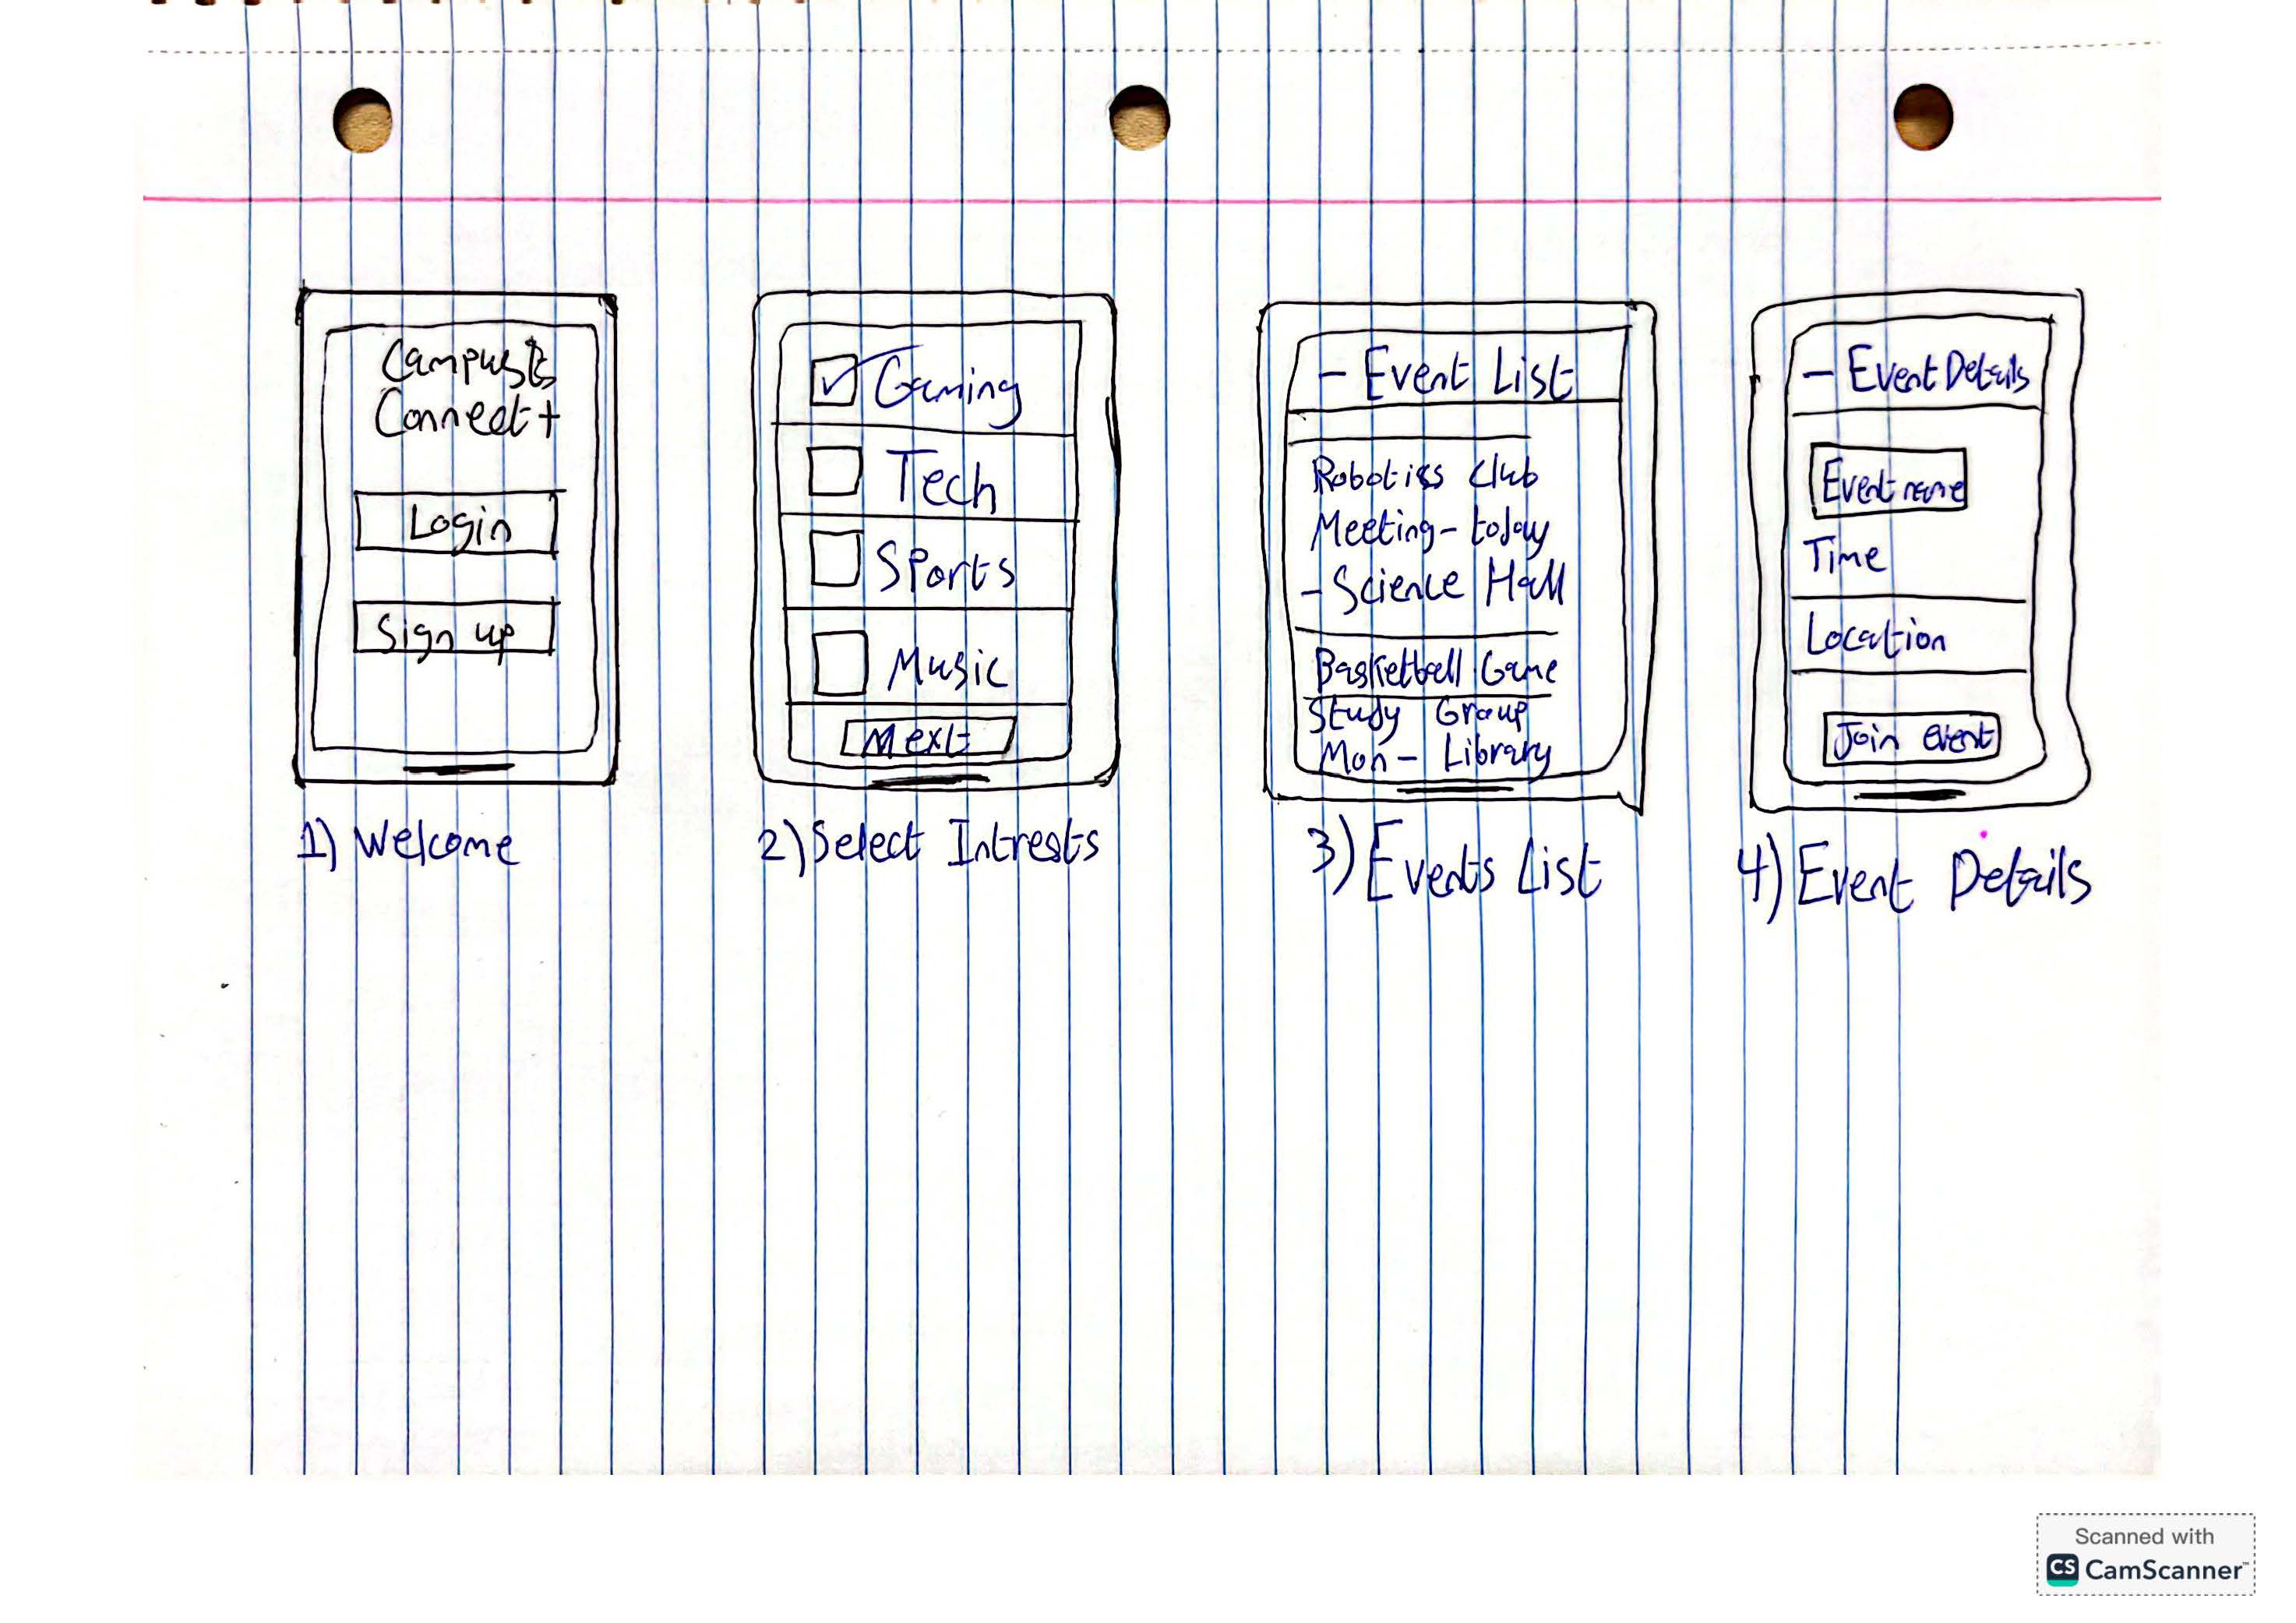 Connect +
Login
Sign up
1) Welcome
Gaming
Tech
Sports
Music
Next
2) Select Intrests
- Event List
Robotics Club
Meeting - today
- Science Hall
Basketball Game
Study Group
Mon - Library
3) Events List
- Event Details
Event name
Time
Location
Join event
4) Event Details
Scanned with
CS CamScanner™